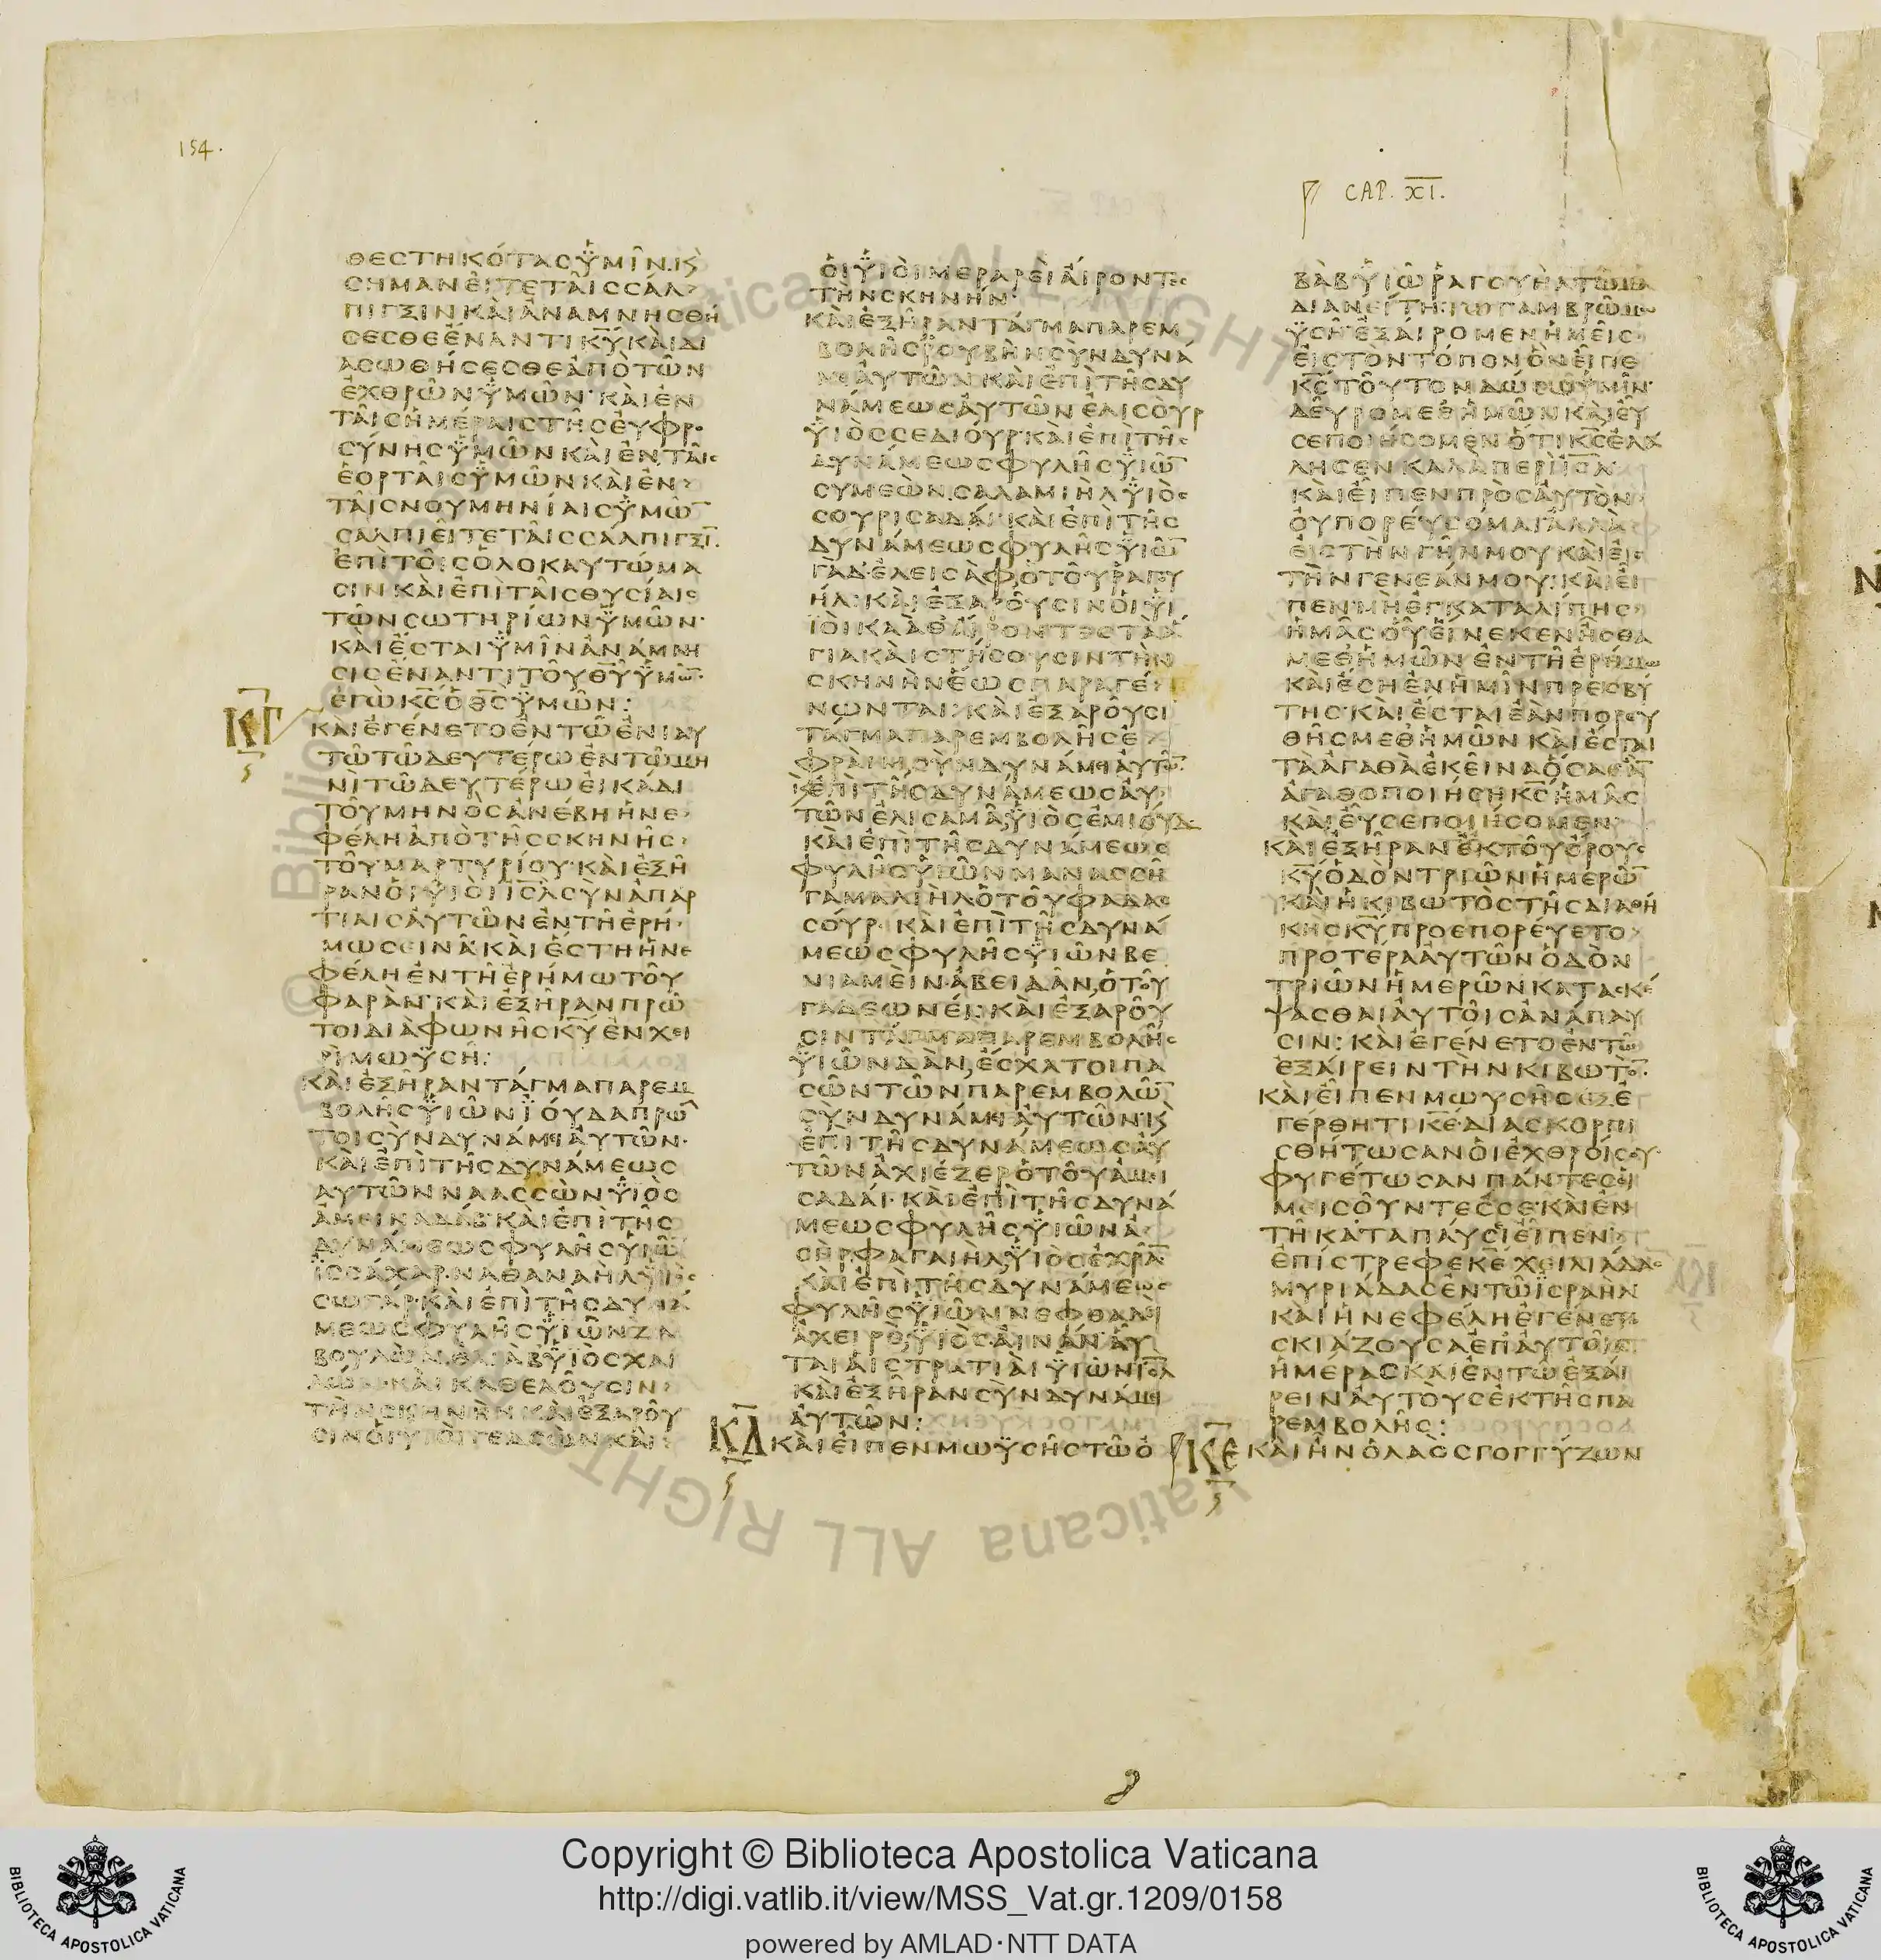 154.
CAP. XI.
ΘΕΣΤΗΚΌΤΑΣ ὙΜῖΝ. Κ̀
ΣΗΜΑΝΕῖΤΕ ΤΑῖΣ ΣΆΛ
ΠΙΓΞΙΝ ΚΑῚ ἈΝΑΜΝΗΣΘΉ
ΣΕΣΘΕ ἜΝΑΝΤΙ Κ̅Υ̅ ΚΑῚ ΔΙ
ΑΣΩΘΉΣΕΣΘΕ ἈΠῸ ΤΩ͂Ν
ἘΧΘΡΩ͂Ν ὙΜΩ͂Ν· ΚΑῚ ἘΝ
ΤΑῖΣ ἩΜΈΡΑΙΣ ΤΗ͂Σ ΕΥ̓ΦΡΟ
ΣΎΝΗΣ ὙΜΩ͂Ν ΚΑῚ ἘΝ ΤΑῖΣ
ἙΟΡΤΑῖΣ ὙΜΩ͂Ν ΚΑῚ ἘΝ
ΤΑῖΣ ΝΟΥΜΗΝΊΑΙΣ ὙΜΩ̅
ΣΑΛΠΙΕῖΤΕ ΤΑῖΣ ΣΆΛΠΙΓΞΙ̅
ἘΠῚ ΤΟῖΣ ὉΛΟΚΑΥΤΏΜΑ
ΣΙΝ ΚΑῚ ἘΠῚ ΤΑῖΣ ΘΥΣΊΑΙΣ
ΤΩ͂Ν ΣΩΤΗΡΊΩΝ ὙΜΩ͂Ν·
ΚΑῚ ἜΣΤΑΙ ὙΜῖΝ ἈΝΆΜΝΗ
ΣΙΣ ἜΝΑΝΤΙ ΤΟΥ͂ Θ̅Υ̅ ὙΜΩ̅·
ἘΓῺ Κ̅Σ̅ Ὁ Θ̅Σ̅ ὙΜΩ͂Ν:
Κ̅Γ̅
ΚΑῚ ἘΓΈΝΕΤΟ ἘΝ ΤΩ͂ ἘΝΙΑΥ
ΤΩ͂ ΤΩ͂ ΔΕΥΤΈΡΩ ἘΝ ΤΩ͂ ΜΗ
ΝῚ ΤΩ͂ ΔΕΥΤΈΡΩ ΕἸΚΆΔΙ
ΤΟΥ͂ ΜΗΝῸΣ ἈΝΈΒΗ Ἡ ΝΕ
ΦΈΛΗ ἈΠῸ ΤΗ͂Σ ΣΚΗΝΗ͂Σ
ΤΟΥ͂ ΜΑΡΤΥΡΊΟΥ· ΚΑῚ ἘΞΗ͂
ΡΑΝ ΟἹ ΥἹΟῚ Ι̅Σ̅Λ̅ ΣΥ̓Ν ἈΠΑΡ
ΤΊΑΙΣ ΑΥ̓ΤΩ͂Ν ἘΝ ΤΗ͂ ἘΡΉ
ΜΩ ΣΕΙΝΑ͂ ΚΑῚ ἜΣΤΗ Ἡ ΝΕ
ΦΈΛΗ ἘΝ ΤΗ͂ ἘΡΉΜΩ ΤΟΥ͂
ΦΑΡᾺΝ· ΚΑῚ ἘΞΗ͂ΡΑΝ ΠΡΩ͂
ΤΟΙ ΔΙᾺ ΦΩΝΗ͂Σ Κ̅Υ̅ ἘΝ ΧΕΙ
ΡῚ ΜΩΫΣΗ͂:
ΚΑῚ ἘΞΗ͂ΡΑΝ ΤΆΓΜΑ ΠΑΡΕΜ
ΒΟΛΗ͂Σ ΥἹΩ͂Ν ἸΟΎΔΑ ΠΡΩ̅
ΤΟΙ ΣῪΝ ΔΥΝΆΜΕΙ ΑΥ̓ΤΩ͂Ν·
ΚΑῚ ἘΠῚ ΤΗ͂Σ ΔΥΝΆΜΕΩΣ
ΑΥΤΩ͂Ν ΝΑΑΣΣῺΝ ΥἹῸΣ
ἈΜΕΙΝΑΔΆΒ· ΚΑῚ ἘΠῚ ΤΗ͂Σ
ΔΥΝΆΜΕΩΣ ΦΥΛΗ͂Σ ΥἹΩ̅
ἸΣΣΆΧΑΡ· ΝΑΘΑΝΑῊΛ ΥἹῸΣ
ΣΩΓΆΡ· ΚΑῚ ἘΠῚ ΤΗ͂Σ ΔΥΝΆ
ΜΕΩΣ ΦΥΛΗ͂Σ ΥἹΩ͂Ν ΖΑ
ΒΟΥΛῺΝ· ἘΛΙᾺΒ ΥἹῸΣ ΧΑΙ
ΛΏΝ· ΚΑῚ ΚΑΘΕΛΟΥ͂ΣΙΝ
ΤῊΝ ΣΚΗΝῊΝ ΚΑῚ ἘΞΑΡΟΥ͂
ΣΙΝ ΟἹ ΥἹΟῚ ΓΕΔΣῺΝ ΚΑῚ
ΟἹ ΥἹΟῚ ΜΕΡΑΡΕῚ ΑἼΡΟΝΤΕΣ
ΤῊΝ ΣΚΗΝΉΝ·
ΚΑῚ ἘΞΗ͂ΡΑΝ ΤΆΓΜΑ ΠΑΡΕΜ
ΒΟΛΗ͂Σ ῬΟΥΒῊΝ ΣῪΝ ΔΥΝΆ
ΜΕΙ ΑΥ̓ΤΩ͂Ν· ΚΑῚ ἘΠῚ ΤΗ͂Σ ΔΥ
ΝΆΜΕΩΣ ΑΥ̓ΤΩ͂Ν ἘΛΙΣΟῪΡ
ΥἹῸΣ ΣΕΔΙΟΎΡ· ΚΑῚ ἘΠῚ ΤΗ͂Σ
ΔΥΝΆΜΕΩΣ ΦΥΛΗ͂Σ ΥἹΩ̅
ΣΥΜΕῺΝ, ΣΑΛΑΜΙῊΛ ΥἹῸΣ
ΣΟΥΡΙΣΑΔΆΙ· ΚΑῚ ἘΠῚ ΤΗ͂Σ
ΔΥΝΆΜΕΩΣ ΦΥΛΗ͂Σ ΥἹΩ̅
ΓᾺΔ· ἘΛΕΙΣᾺΦ, Ὁ ΤΟΥ͂ ῬΑΓΟΥ
ΉΛ· ΚΑῚ ἘΞΑΡΟΥ͂ΣΙΝ ΟἹ ΥἹ
ΟῚ ΚΑᾺΘ ΑἼΡΟΝΤΕΣ ΤᾺ Ἅ
ΓΙΑ ΚΑῚ ΣΤΉΣΟΥΣΙΝ ΤῊΝ
ΣΚΗΝῊΝ ἝΩΣ ΠΑΡΑΓΈ
ΝΩΝΤΑΙ· ΚΑῚ ἘΞΑΡΟΥ͂ΣΙ
ΤΆΓΜΑ ΠΑΡΕΜΒΟΛΗ͂Σ Ἐ
ΦΡΆΙΜ, ΣῪΝ ΔΥΝΆΜΕΙ ΑΥ̓ΤΩ̅·
Κ̀ ἘΠῚ ΤΗ͂Σ ΔΥΝΆΜΕΩΣ ΑΥ̓
ΤΩ͂Ν ἘΛΙΣΑΜᾺ, ΥἹῸΣ ἘΜΙΟΎΔ·
ΚΑῚ ἘΠῚ ΤΗ͂Σ ΔΥΝΆΜΕΩΣ
ΦΥΛΗ͂Σ ΥἹΩ͂Ν ΜΑΝΑΣΣΗ͂
ΓΑΜΑΛΙῊΛ Ὁ ΤΟΥ͂ ΦΑΔΑΣ
ΣΟΎΡ· ΚΑῚ ἘΠῚ ΤΗ͂Σ ΔΥΝΆ
ΜΕΩΣ ΦΥΛΗ͂Σ ΥἹΩ͂Ν ΒΕ
ΝΙΑΜΕῚΝ· ἈΒΕΙΔᾺΝ, Ὁ ΤΟΥ͂
ΓΑΔΕΩΝΕΊ· ΚΑῚ ἘΞΑΡΟΥ͂
ΣΙΝ ΤΆΓΜΑ ΠΑΡΕΜΒΟΛΗ͂Σ
ΥἹΩ͂Ν ΔᾺΝ, ἜΣΧΑΤΟΙ ΠΑ
ΣΩ͂Ν ΤΩ͂Ν ΠΑΡΕΜΒΟΛΩ̅
ΣῪΝ ΔΥΝΆΜΕΙ ΑΥ̓ΤΩ͂Ν· Κ̀
ἘΠῚ ΤΗ͂Σ ΔΥΝΆΜΕΩΣ ΑΥ̓
ΤΩ͂Ν ἈΧΙΈΖΕΡ Ὁ ΤΟΥ͂ ἈΜΙ
ΣΑΔΆΙ· ΚΑῚ ἘΠῚ ΤΗ͂Σ ΔΥΝΆ
ΜΕΩΣ ΦΥΛΗ͂Σ ΥἹΩ͂Ν Ἀ
ΣῊΡ· ΦΑΓΑΙῊΛ ΥἹῸΣ ἘΧΡᾺ̅
ΚΑῚ ἘΠῚ ΤΗ͂Σ ΔΥΝΆΜΕΩΣ
ΦΥΛΗ͂Σ ΥἹΩ͂Ν ΝΕΦΘΑΛῚ
ἈΧΕΙΡῈ, ΥἹῸΣ ΑἸΝΆΝ· ΑὟ
ΤΑΙ ΑἹ ΣΤΡΑΤΙΑῚ ΥἹΩ͂Ν Ι̅Σ̅Λ̅
ΚΑῚ ἘΞΗ͂ΡΑΝ ΣῪΝ ΔΥΝΆΜΕΙ
ΑΥ̓ΤΩ͂Ν:
Κ̅Δ̅
ΚΑῚ ΕἾΠΕΝ ΜΩΫΣΗ͂Σ ΤΩ͂ Ὀ
ΒᾺΒ ΥἹΩ͂ ῬΑΓΟΥῊΛ ΤΩ͂ ΜΑ
ΔΙΑΝΕΊΤΗ· ΤΩ͂ ΓΑΜΒΡΩ͂ ΜΩ
ΫΣΗ͂· ἘΞΑΊΡΟΜΕΝ ἩΜΕῖΣ
ΕἸΣ ΤῸΝ ΤΌΠΟΝ ὋΝ ΕἾΠΕ
Κ̅Σ̅ ΤΟΥ͂ΤΟΝ ΔΏΣΩ ὙΜῖΝ·
ΔΕΥ͂ΡΟ ΜΕΘ ἩΜΩ͂Ν ΚΑῚ ΕΥ̓͂
ΣΕ ΠΟΙΉΣΟΜΕΝ ὍΤΙ Κ̅Σ̅ ἘΛΆ
ΛΗΣΕΝ ΚΑΛᾺ ΠΕΡῚ Ι̅Σ̅Λ̅
ΚΑῚ ΕἾΠΕΝ ΠΡῸΣ ΑΥ̓ΤῸΝ·
ΟΥ̓ ΠΟΡΕΎΣΟΜΑΙ ἈΛΛᾺ
ΕἸΣ ΤῊΝ ΓΗ͂Ν ΜΟΥ ΚΑῚ ΕἸΣ
ΤῊΝ ΓΕΝΕΆΝ ΜΟΥ: ΚΑῚ ΕἾ
ΠΕΝ· ΜῊ ἘΓΚΑΤΑΛΊΠΗΣ
ἩΜΑ͂Σ ΟὟ ΕἽΝΕΚΕΝ ἨΣΘΑ
ΜΕΘ ἩΜΩ͂Ν ἘΝ ΤΗ͂ ἘΡΉΜΩ
ΚΑῚ ἜΣΗ ἘΝ ἩΜῖΝ ΠΡΕΣΒΎ
ΤΗΣ· ΚΑῚ ἜΣΤΑΙ ἘᾺΝ ΠΟΡΕΥ
ΘΗ͂Σ ΜΕΘ ἩΜΩ͂Ν ΚΑῚ ἜΣΤΑΙ
ΤᾺ ἈΓΑΘᾺ ἘΚΕῖΝΑ ὍΣΑ ἘᾺ̅
ἈΓΑΘΟΠΟΙΉΣΗ Κ̅Σ̅ ἩΜΑ͂Σ
ΚΑῚ ΕΥ̓͂ ΣΕ ΠΟΙΉΣΟΜΕΝ·
ΚΑῚ ἘΞΗ͂ΡΑΝ ἘΚ ΤΟΥ͂ ὌΡΟΥΣ
Κ̅Υ̅ ὉΔῸΝ ΤΡΙΩ͂Ν ἩΜΕΡΩ̅
ΚΑῚ Ἡ ΚΙΒΩΤῸΣ ΤΗ͂Σ ΔΙΑΘΉ
ΚΗΣ Κ̅Υ̅ ΠΡΟΕΠΟΡΕΎΕΤΟ
ΠΡΟΤΈΡΑ ΑΥ̓ΤΩ͂Ν ὉΔῸΝ
ΤΡΙΩ͂Ν ἩΜΕΡΩ͂Ν ΚΑΤΑΣΚΈ
ΨΑΣΘΑΙ ΑΥ̓ΤΟῖΣ ἈΝΆΠΑΥ
ΣΙΝ: ΚΑῚ ἘΓΈΝΕΤΟ ἘΝ ΤΩ͂
ἘΞΑΊΡΕΙΝ ΤῊΝ ΚΙΒΩΤῸ̅·
ΚΑῚ ΕἾΠΕΝ ΜΩΥΣΗ͂Σ ἘΞΕ
ΓΈΡΘΗΤΙ Κ̅Ε̅· ΔΙΑΣΚΟΡΠΙ
ΣΘΉΤΩΣΑΝ ΟἹ ἘΧΘΡΟΊ ΣΟΥ·
ΦΥΓΈΤΩΣΑΝ ΠΆΝΤΕΣ ΟἹ
ΜΕΙΣΟΥ͂ΝΤΕΣ ΣΕ· ΚΑῚ ἘΝ
ΤΗ͂ ΚΑΤΑΠΑΎΣΕΙ ΕἾΠΕΝ·
ἘΠΊΣΤΡΕΦΕ Κ̅Ε̅ ΧΕΙΛΙΆΔΑΣ
ΜΥΡΙΆΔΑΣ ἘΝ ΤΩ͂ ἸΣΡΑῊΛ
ΚΑῚ Ἡ ΝΕΦΈΛΗ ἘΓΈΝΕΤΟ
ΣΚΙΆΖΟΥΣΑ ἘΠ ΑΥ̓ΤΟῖΣ
ἩΜΈΡΑΣ ΚΑῚ ἘΝ ΤΩ͂ ἘΞΑΊ
ΡΕΙΝ ΑΥ̓ΤΟῪΣ ἘΚ ΤΗ͂Σ ΠΑ
ΡΕΜΒΟΛΗ͂Σ:
Κ̅Ε̅
ΚΑῚ ἮΝ Ὁ ΛΑῸΣ ΓΟΓΓΎΖΩΝ
Copyright © Biblioteca Apostolica Vaticana
http://digi.vatlib.it/view/MSS_Vat.gr.1209/0158
powered by AMLAD·NTT DATA
BIBLIOTECA APOSTOLICA VATICANA
BIBLIOTECA APOSTOLICA VATICANA